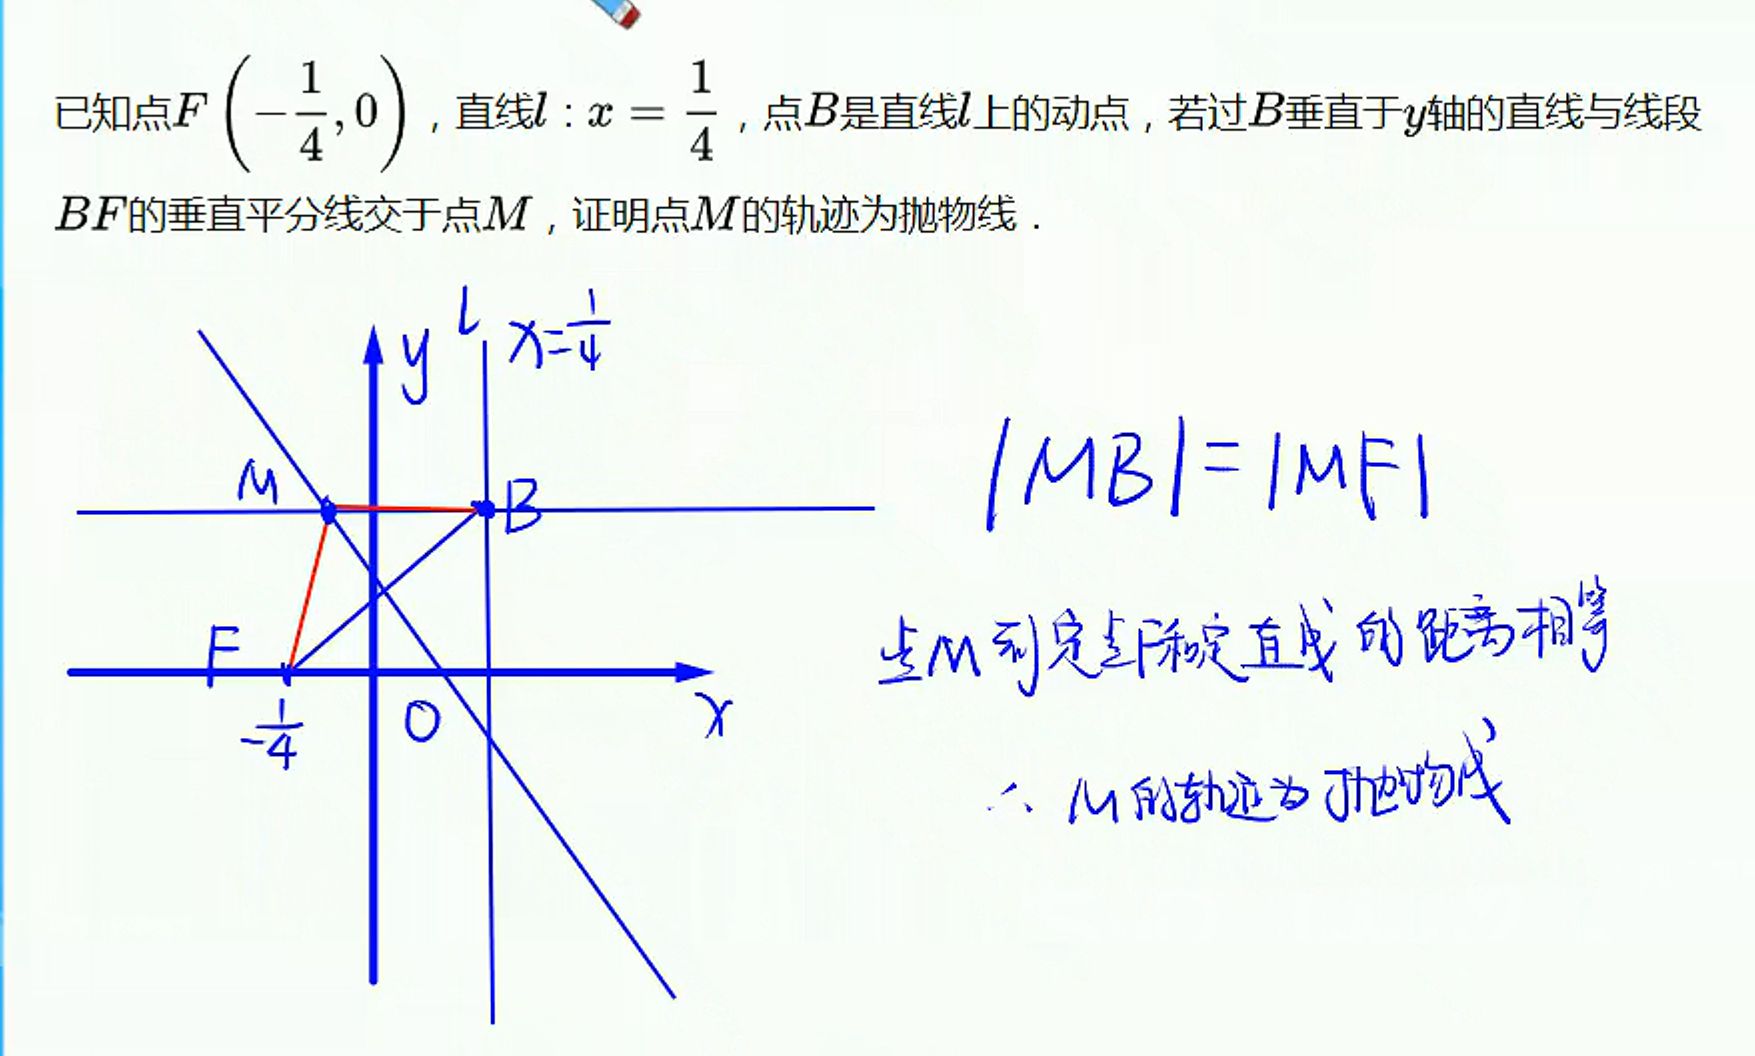 已知点F(-1/4, 0)，直线l：x = 1/4，点B是直线l上的动点，若过B垂直于y轴的直线与线段
BF的垂直平分线交于点M，证明点M的轨迹为抛物线．
l x=1/4
y
M
B
|MB|=|MF|
F
点M到定点F和定直线的距离相等
-1/4
O
x
∴ M的轨迹为抛物线